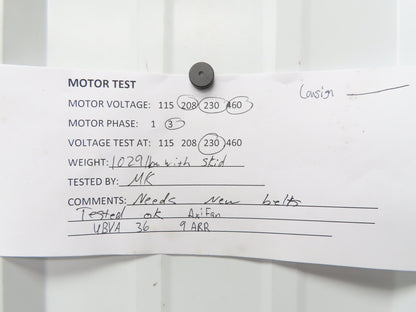 MOTOR TEST
Consign
MOTOR VOLTAGE: 115 208 230 460
MOTOR PHASE: 1 3
VOLTAGE TEST AT: 115 208 230 460
WEIGHT: 1029 lbs with skid
TESTED BY: MK
COMMENTS: Needs New belts
Tested ok Axi Fan
UBVA 36 9 ARR